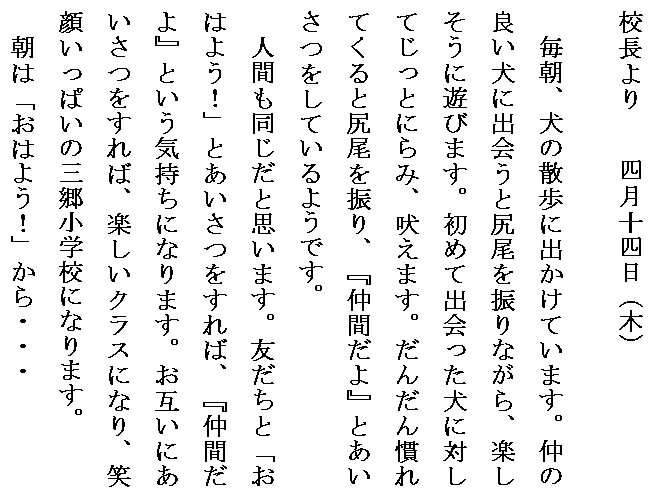 校長より　　四月十四日（木）
　毎朝、犬の散歩に出かけています。仲の
良い犬に出会うと尻尾を振りながら、楽し
そうに遊びます。初めて出会った犬に対し
てじっとにらみ、吠えます。だんだん慣れ
てくると尻尾を振り、『仲間だよ』とあい
さつをしているようです。
　人間も同じだと思います。友だちと「お
はよう！」とあいさつをすれば、『仲間だ
よ』という気持ちになります。お互いにあ
いさつをすれば、楽しいクラスになり、笑
顔いっぱいの三郷小学校になります。
　朝は「おはよう！」から・・・